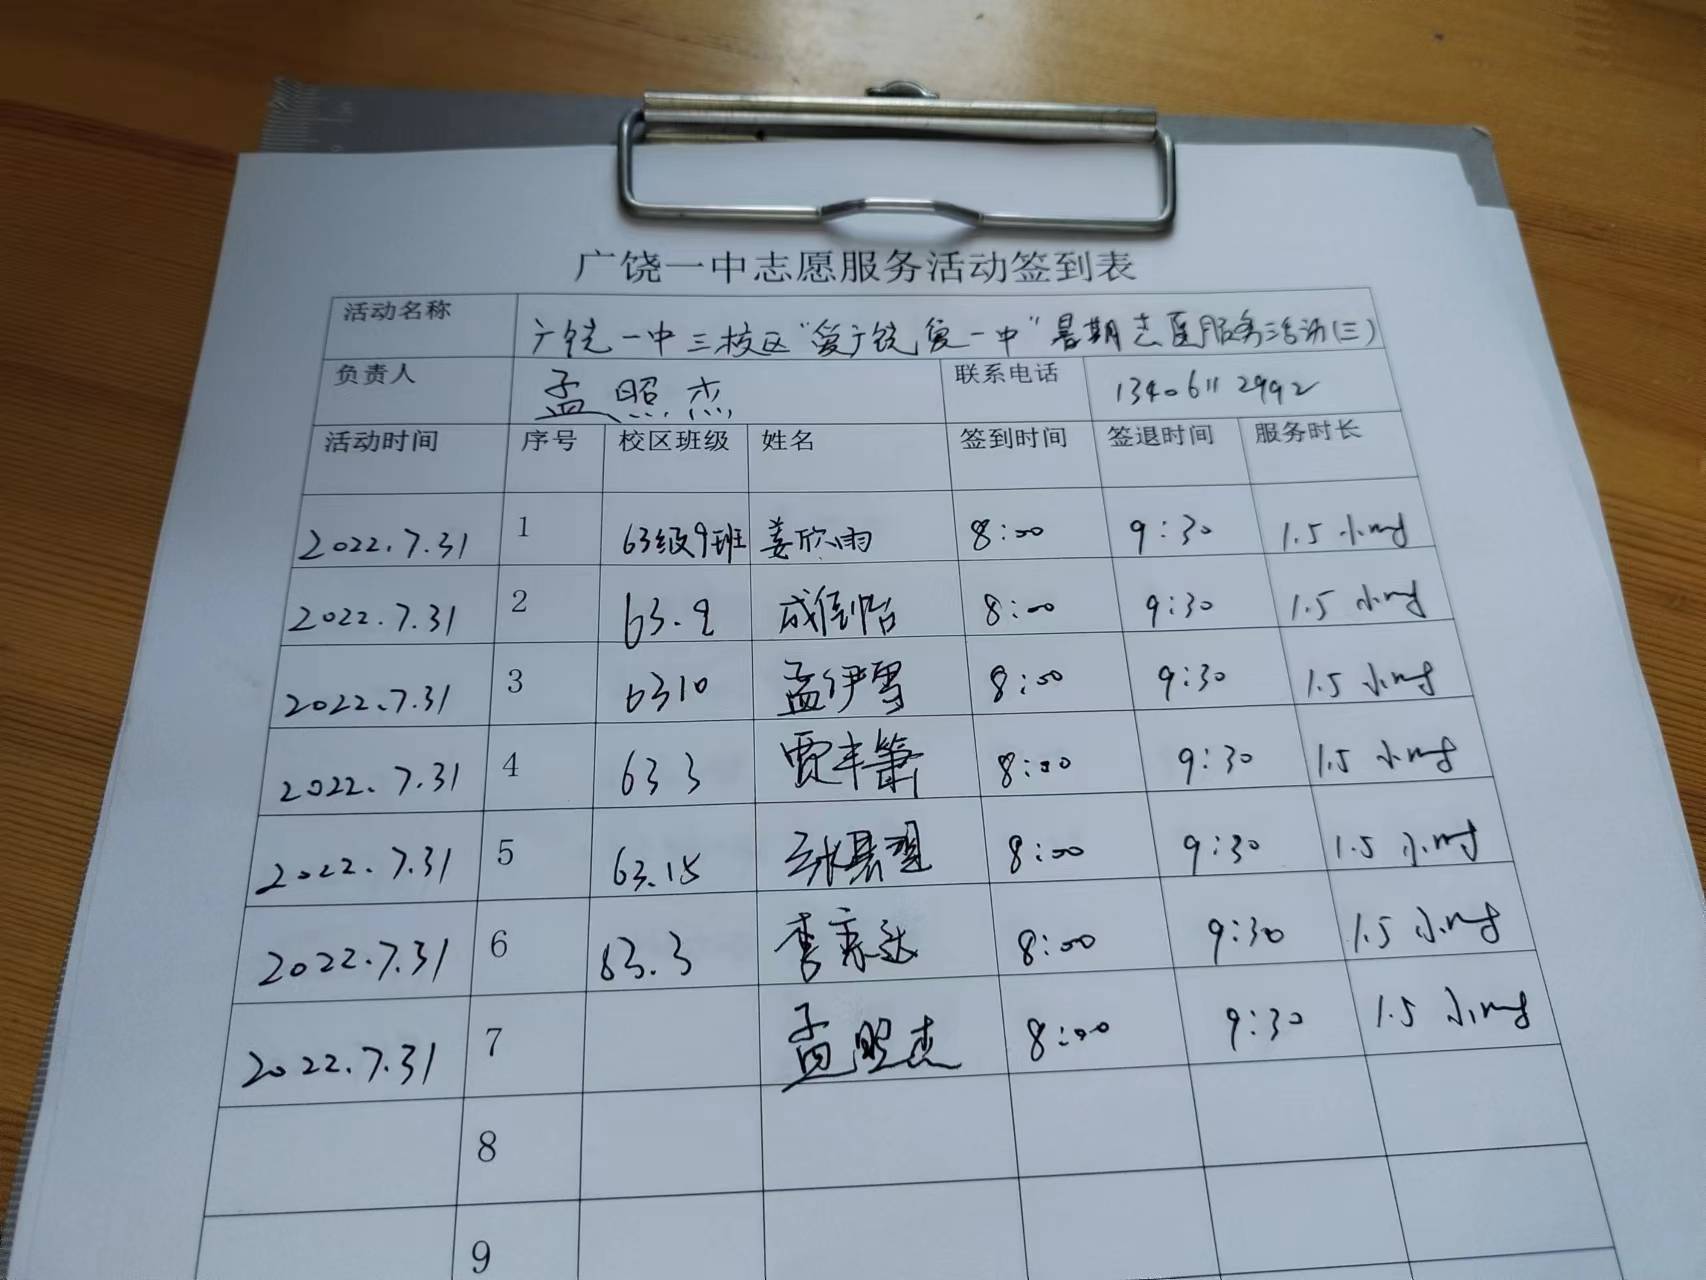 广饶一中志愿服务活动签到表
活动名称 广饶一中三校区“爱广饶爱一中”暑期志愿服务活动(三)
负责人 孟照杰 联系电话 13406112992
活动时间 序号 校区班级 姓名 签到时间 签退时间 服务时长
2022.7.31 1 63级9班 姜欣雨 8:00 9:30 1.5小时
2022.7.31 2 63.9 成 怡 8:00 9:30 1.5小时
2022.7.31 3 6310 孟伊雪 8:00 9:30 1.5小时
2022.7.31 4 63 3 贾丰 8:00 9:30 1.5小时
2022.7.31 5 63.15 8:00 9:30 1.5小时
2022.7.31 6 63.3 李 达 8:00 9:30 1.5小时
2022.7.31 7 孟照杰 8:00 9:30 1.5小时
8
9